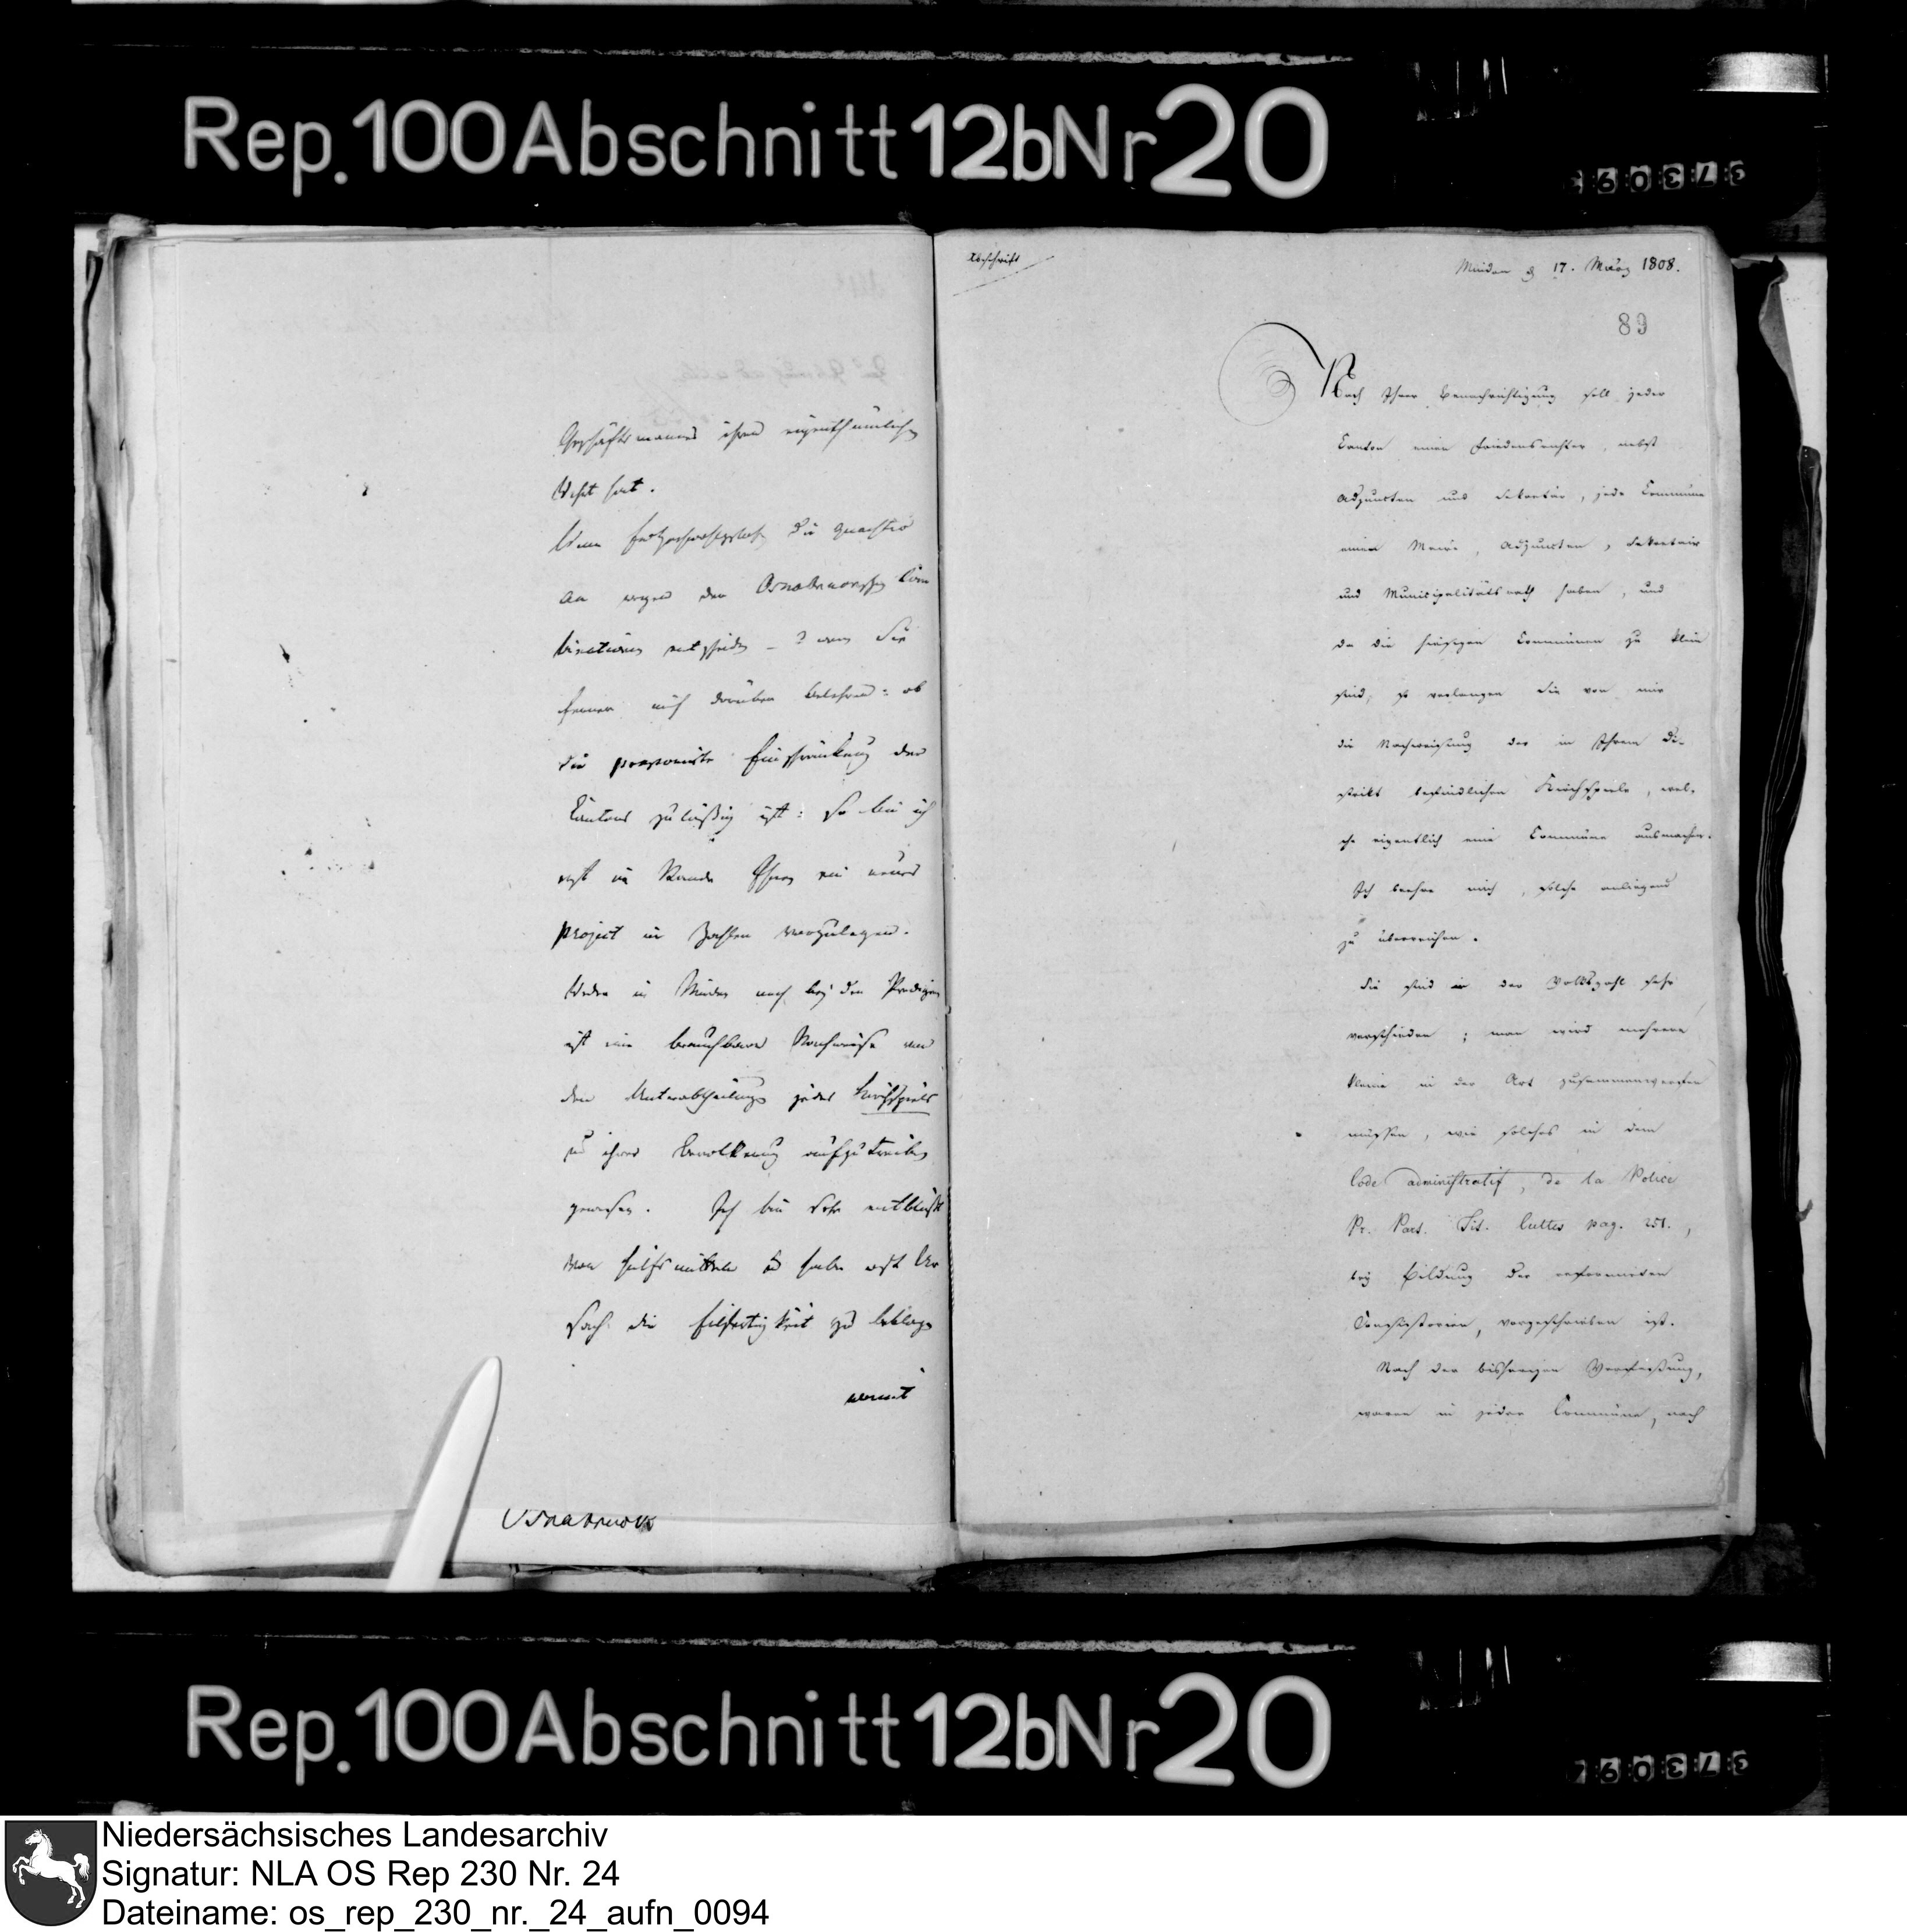 Rep. 100 Abschnitt 12b Nr 20
Geschäftsmannes ihren eigenthümlichen
Werth hat.
Wenn die quaestio
an wegen der Osnabrückschen Com
binationen entschieden – ? wenn Sie
ferner mich darüber belehren: ob
die Einschränkung der
Cantons zuläßig ist: so bin ich
erst im Stande Ihnen ein neues
project in Zahlen vorzulegen.
Weder in Minden noch bey den Predigern
ist eine brauchbare Nachweise von
den Unterabtheilungen jedes Kirchspiels
u ihrer Bevölkerung aufzutreiben
gewesen. Ich bin sehr entblößt
von Hülfsmitteln u habe erst Ur
sach die Eilfertigkeit zu beklagen
womit
Osnabrück
Abschrift
Minden d 17. März 1808.
89
Nach Ihrer Benachrichtigung soll jeder
Canton einen Friedensrichter, nebst
Adjuncten und Sekretär, jede Commune
einen Maire, Adjuncten, Sekretair
und Municipalitätsrath haben, und
da die hiesigen Communen zu klein
sind, so verlangen Sie von mir
die Nachweisung der in Ihrem Di-
strikt befindlichen Kirchspiele, wel-
che eigentlich eine Commune ausmachen.
Ich beehre mich, solche anliegend
zu überreichen.
Sie sind in der Volkszahl sehr
verschieden; man wird mehrere
kleine in der Art zusammenwerfen
müssen, wie solches in dem
Code administratif, de la Police
Pr. Part. Tit. Cultes pag. 251.,
bey Bildung der reformirten
Consistorien, vorgeschrieben ist.
Nach der bisherigen Verfaßung,
waren in jeder Commune, nach
Rep. 100 Abschnitt 12b Nr 20
Niedersächsisches Landesarchiv
Signatur: NLA OS Rep 230 Nr. 24
Dateiname: os_rep_230_nr._24_aufn_0094